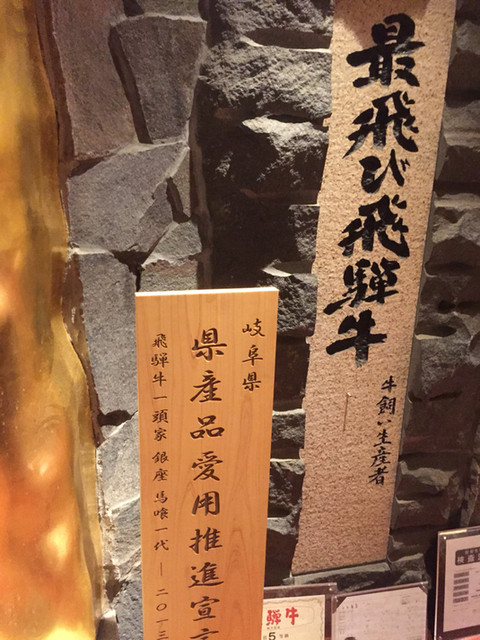 最飛び飛騨牛
牛飼い生産者
岐阜県
県産品愛用推進宣言
飛騨牛一頭家 銀座 馬喰一代 ― 二〇一三
騨牛
5
検査